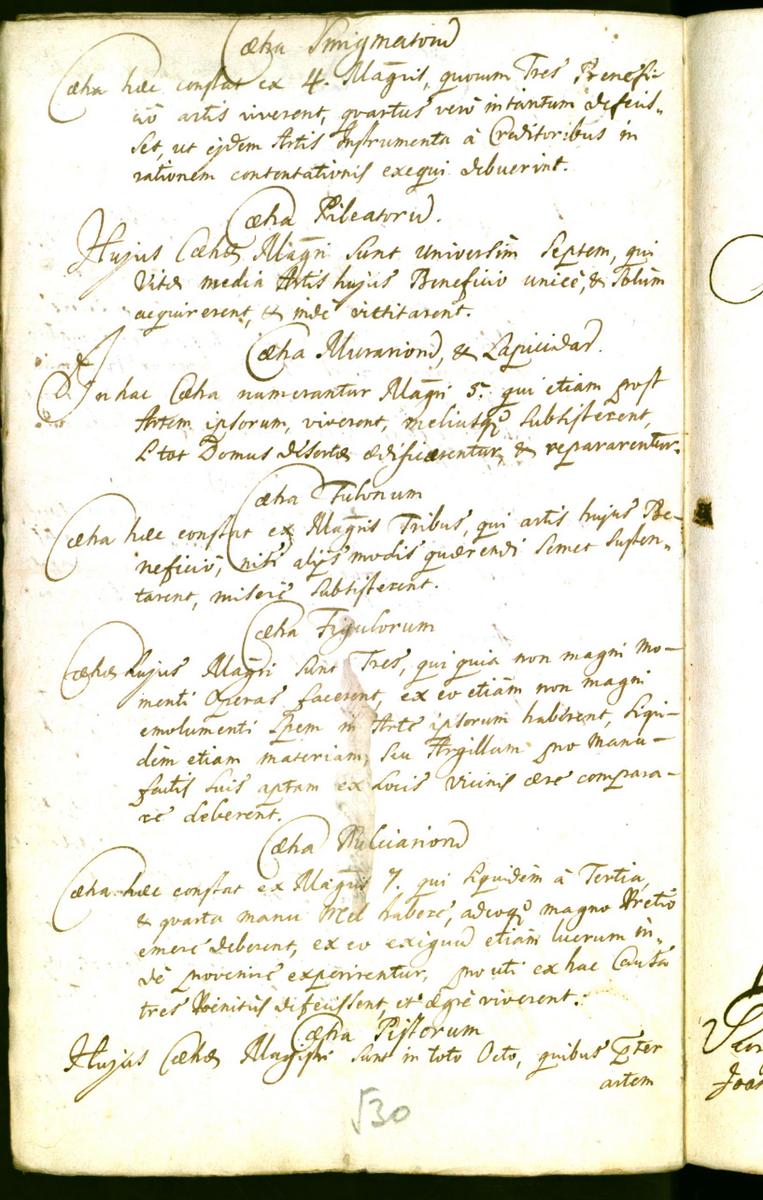 Cæha Smigmatorū
Cæha hæc constat ex 4. Magr̄is, quorum Tres Benefi-
ciō artis viverent, qvartus verò intantum defecis-
set, ut ejdem Artis Instrumenta à Creditoribus in
rationem contentationis exequi debuerint.
Cæha Pileatorū.
Hujus Cæhæ Magr̄i sunt universim Septem, qui
Vitæ media Artis hujus Beneficio unicè, & Solùm
acquirerent, & indè victitarent.
Cæha Murariorū, & Lapicidarū.
In hac Cæha numerantur Magr̄i 5. qui etiam post
Artem ipsorum, viverent, meliusq̄ subsisterent,
si tot Domus desertæ ædificarentur, & repararentur.
Cæha Fulonum
Cæha hæc constat ex Magr̄is Tribus, qui artis hujus Be-
neficiō, nisi alijs modis quærendi semet susten-
tarent, miserè subsisterent.
Cæha Figulorum
Cæhæ hujus Magr̄i sunt Tres, qui quia non magni mo-
menti operas facerent, ex eo etiam non magni
emolumenti Spem in Arte ipsorum haberent, siqui-
dem etiam materiam, seu Argillam pro manu-
factis suis aptam ex Locis vicinis ære compara-
re deberent.
Cæha
Cæha hæc constat ex Magr̄is 7. qui siquidèm à Tertia,
& qvarta manu Mel habere, adeoq̄ magno Pretio
emere deberent, ex eo exiguū etiam lucrum in-
dè provenire experirentur, prouti ex hac Causa
tres Penitùs defecissent, et ægrè viverent.
Cæha Pistorum
Hujus Cæhæ Magistri sunt in toto Octo, quibus p̄ter
artem
√30